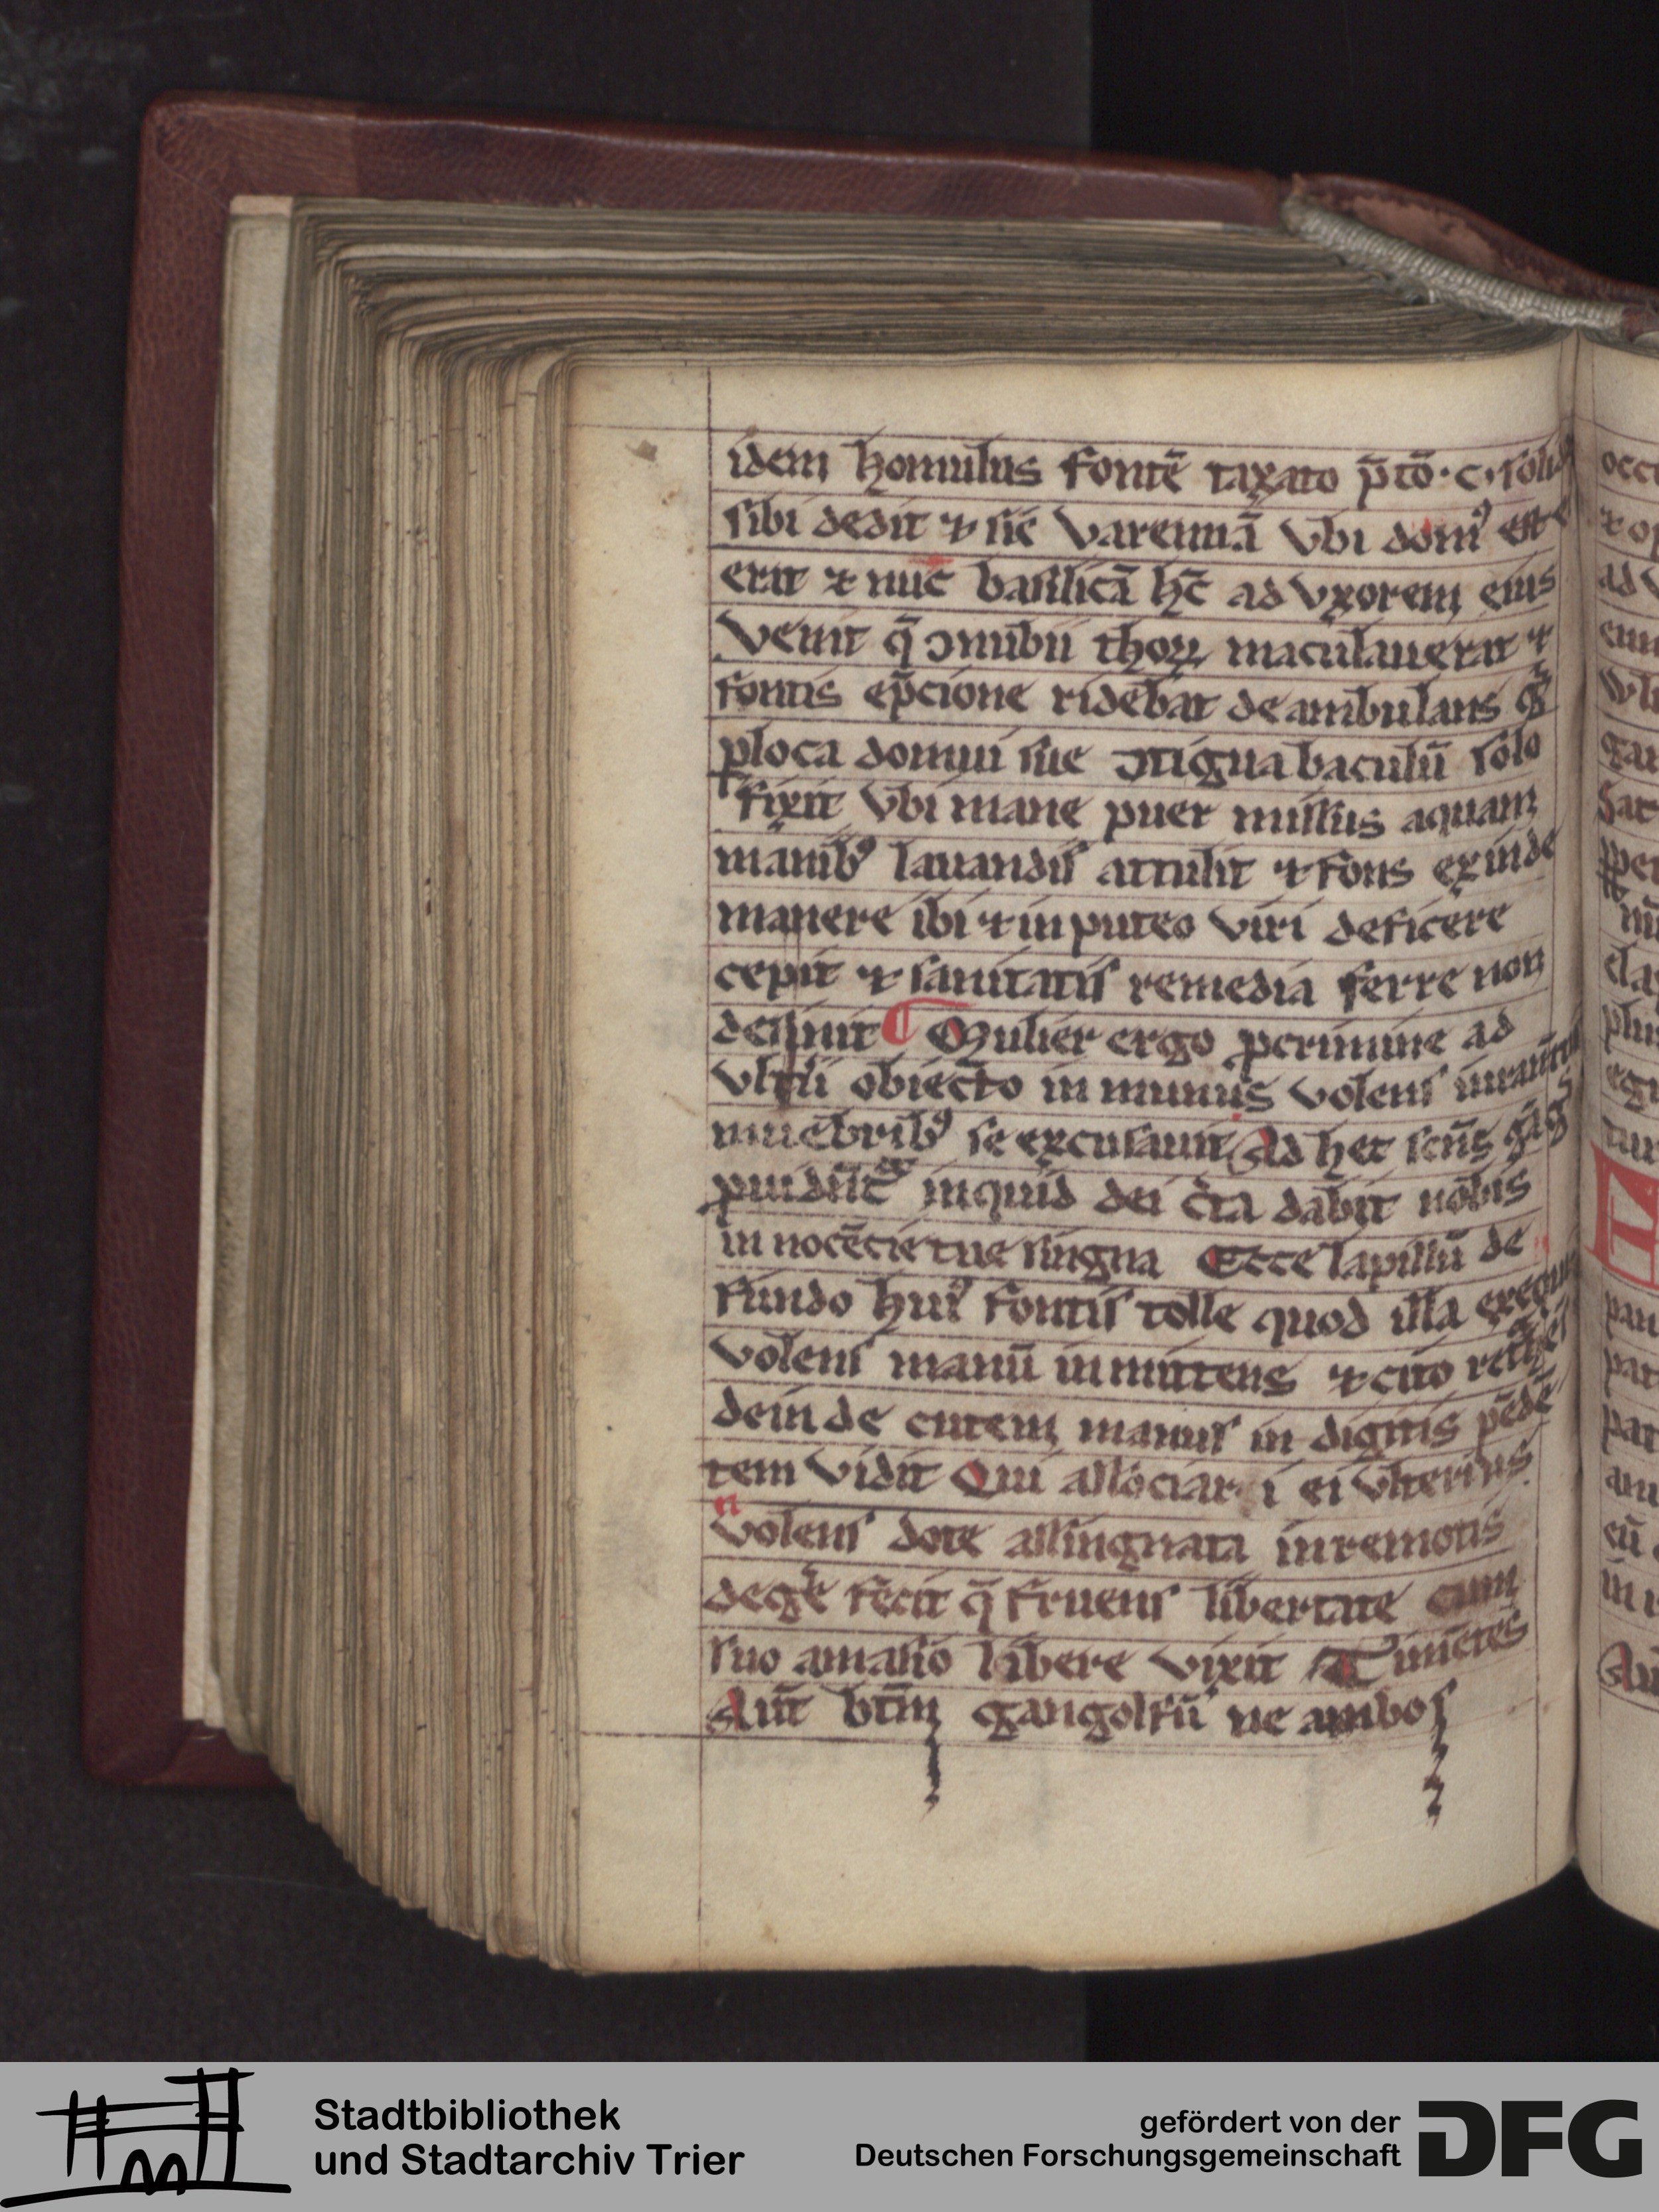 idem homulus fontē taxato p̄tō · c · solid
sibi dedit ⁊ sic varennā vbi domꝰ eꝰ
erat ⁊ nūc basilicā hꝫ ad vxorem eius
venit q̄ ꝯnubii thorū maculauerat ⁊
fontis ep̄cione ridebat deambulans
ploca domui sue ꝯtigua baculū solo
fixit vbi mane puer missus aquam
manibꝰ lauandis attulit ⁊ fons exinde
manere ibi ⁊ in puteo viri deficere
cepit ⁊ sanitatis remedia ferre non
desinit ¶ Mulier ergo ad
obiecto volens
muēbribꝰ se excusauit Ad hec scūs
inquid dei dabit nobis
in nocēcie tue singna Ecce lapillū de
fundo huiꝰ fontis tolle quod illa exequi
volens manū inmittens ⁊ cito
deinde cutem manus in digitis pēdē
tem vidit Qui ei vlterius
n
volens dote assingnata in remotis
fecit q̄ fruens libertate cum
suo amasio libere vixit Timētes
Aūt btm̄ gangolfū ne ambos
Stadtbibliothek
und Stadtarchiv Trier
gefördert von der
Deutschen Forschungsgemeinschaft
DFG